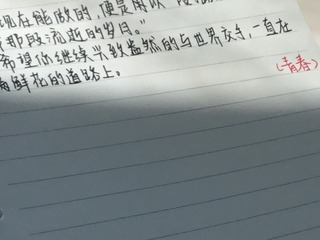 现在能做的，便是用以
那段流逝的岁月。”
希望你继续兴致盎然的与世界交手，一直走
鲜花的道路上。
（青春）